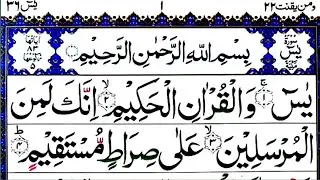 ومن يقنت ٢٢
١
يٰسٓ ٣٦
بِسْمِ اللّٰهِ الرَّحْمٰنِ الرَّحِيْمِ
يٰسٓ ۚ﴿۱﴾ وَالْقُرْاٰنِ الْحَكِيْمِ ۙ﴿۲﴾ اِنَّكَ لَمِنَ
الْمُرْسَلِيْنَ ۙ﴿۳﴾ عَلٰى صِرَاطٍ مُّسْتَقِيْمٍ ؕ﴿۴﴾